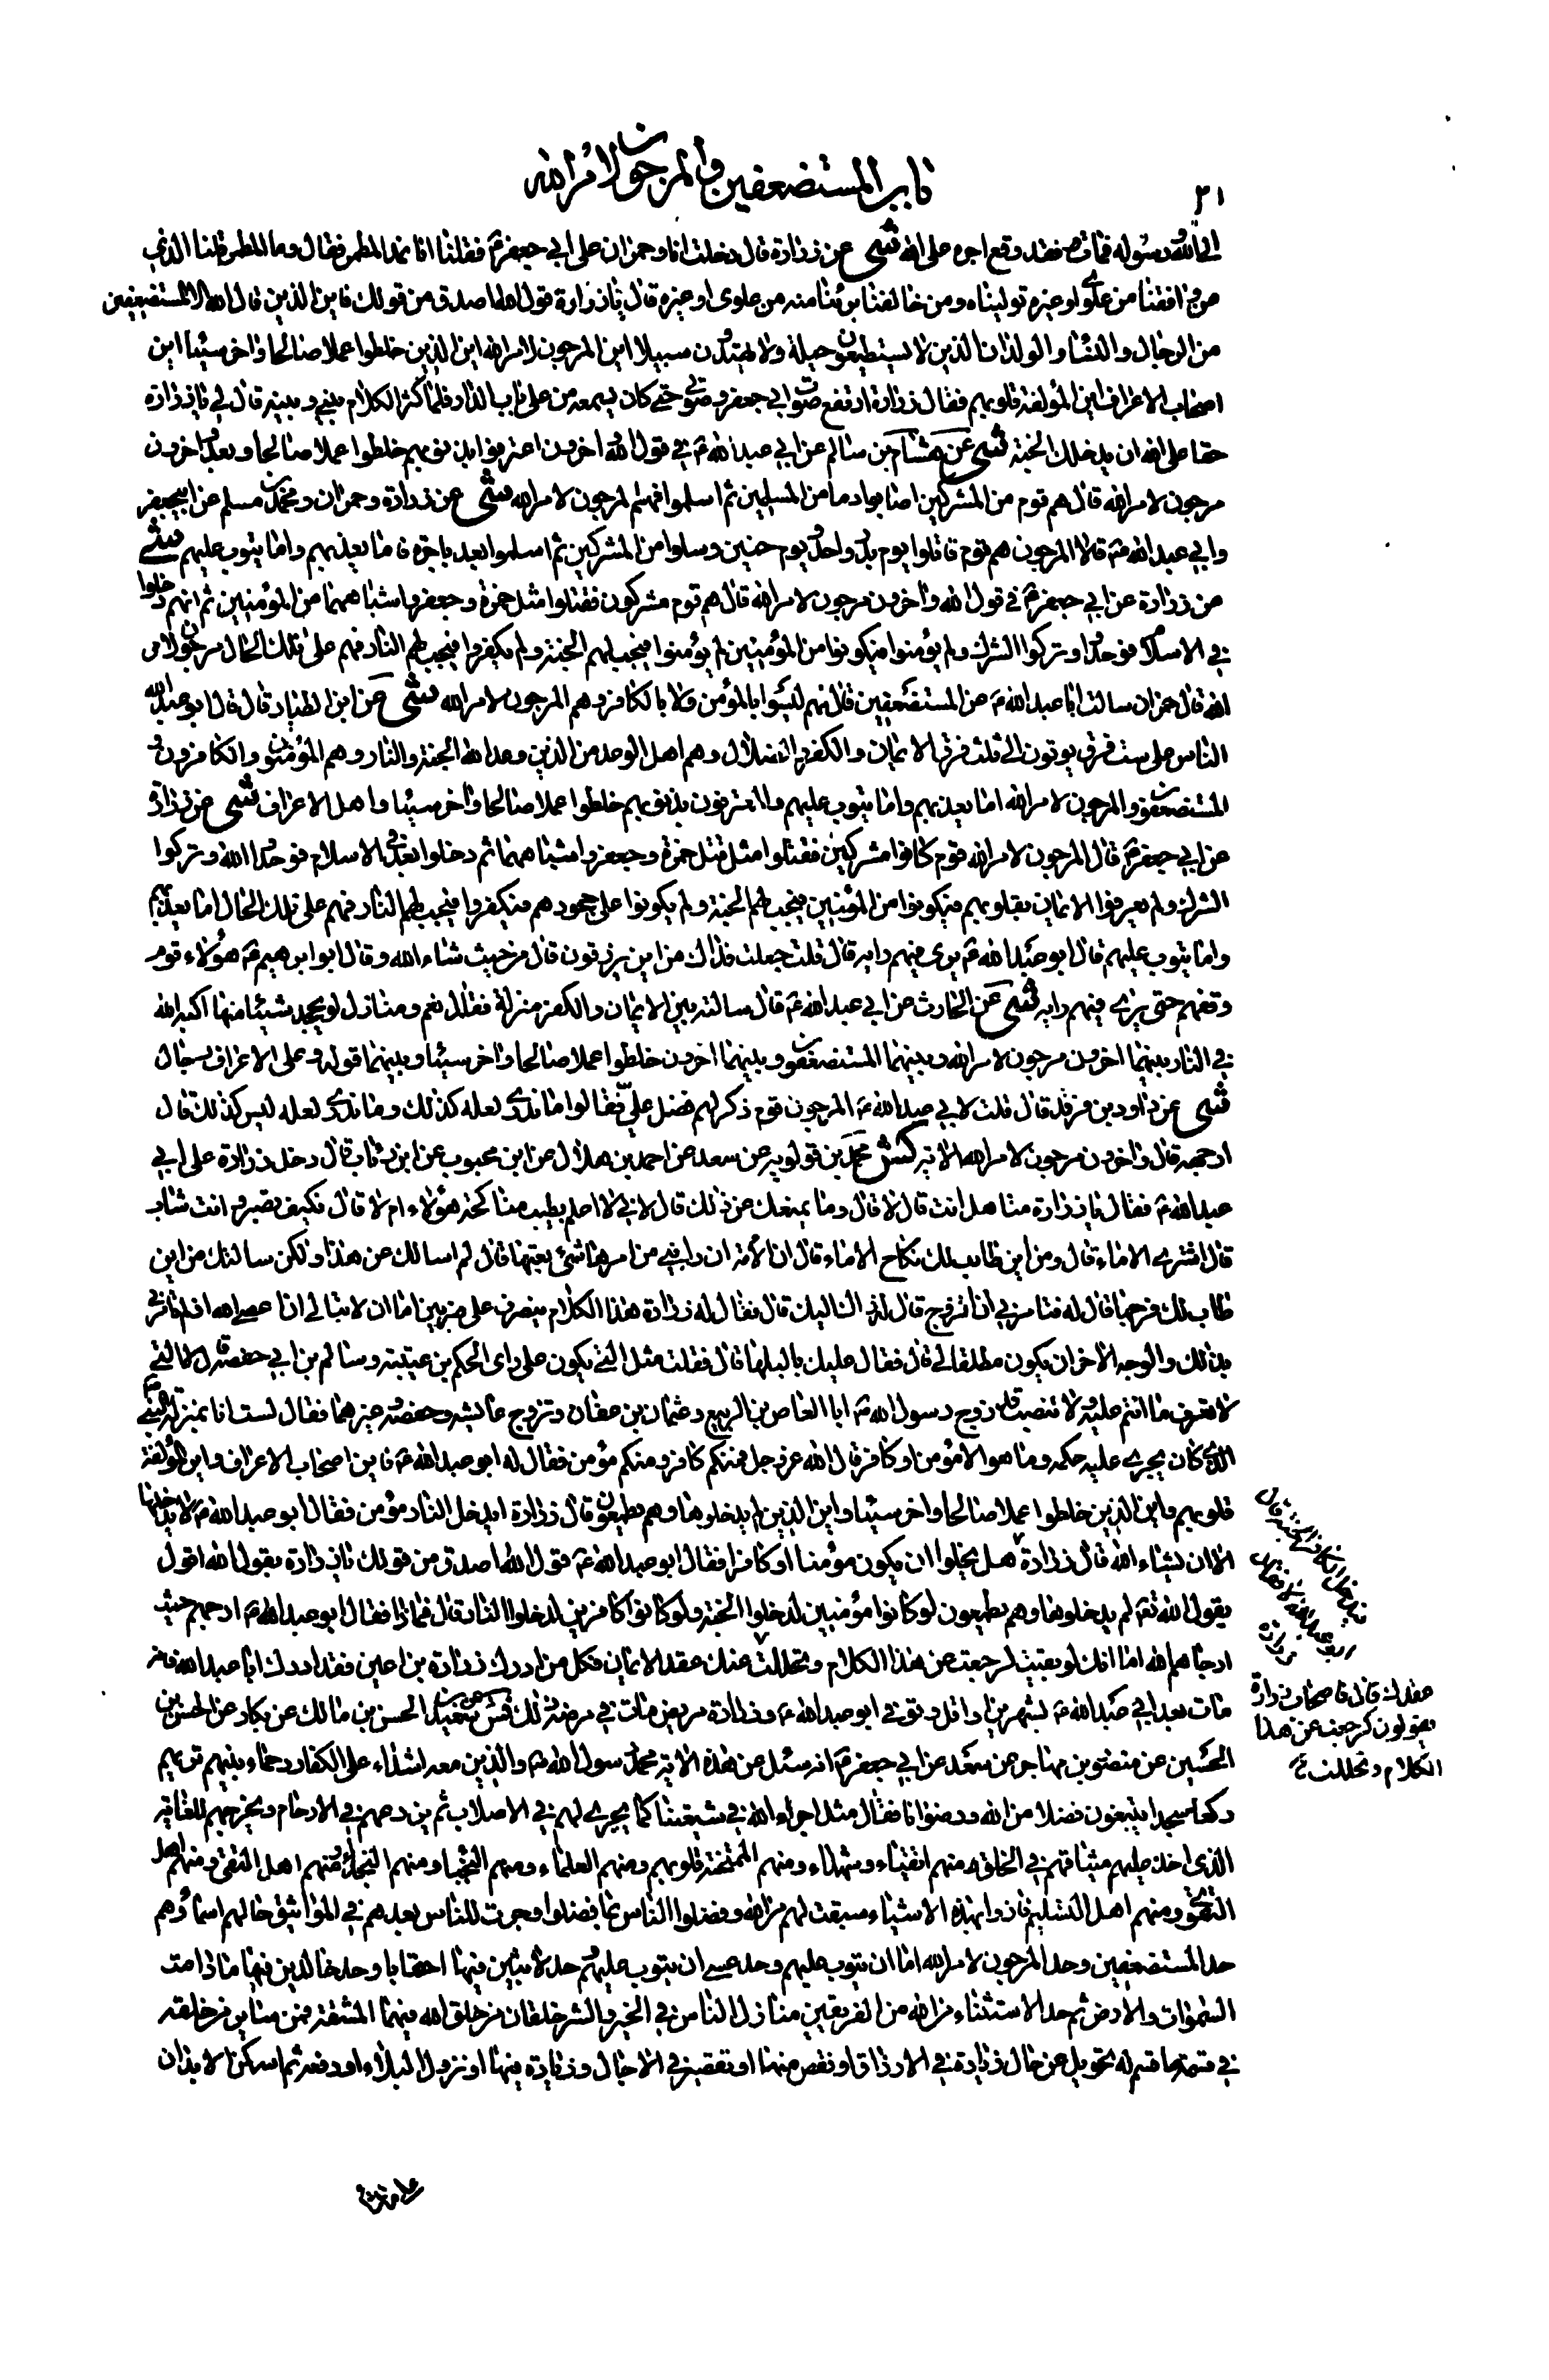 باب المستضعفين والمرجون لامر الله
٢١
الى الله ورسوله فمات فقد وقع اجره على الله شى عن زرارة قال دخلت انا وحمران على ابي جعفر ع فقلنا انا نمد المطمر فقال وما المطمر قلنا الذي
من وافقنا من علوي او غيره توليناه ومن خالفنا برئنا منه من علوى او غيره قال يا زرارة قول الله اصدق من قولك فاين الذين قال الله الا المستضعفين
من الرجال والنساء والولدان الذين لا يستطيعون حيلة ولا يهتدون سبيلا اين المرجون لامر الله اين الذين خلطوا عملا صالحا واخر سيئا اين
اصحاب الاعراف اين المؤلفة قلوبهم فقال زرارة ارتفع صوت ابي جعفر وصوتي حتى كان يسمعه من على باب الدار فلما كثر الكلام بيني وبينه قال لي يا زرارة
حقا على الله ان يدخلك الجنة شى عن هشام بن سالم عن ابي عبد الله ع في قول الله واخرون اعترفوا بذنوبهم خلطوا عملا صالحا وبعد واخرون
مرجون لامر الله قال هم قوم من المشركين اصابوا دما من المسلمين ثم اسلموا فهم المرجون لامر الله شى عن زرارة وحمران ومحمد بن مسلم عن ابيجعفر
وابي عبد الله ع قالا المرجون هم قوم قاتلوا يوم بدر واحد ويوم حنين وسلوا من المشركين ثم اسلموا بعد تاخره فاما يعذبهم واما يتوب عليهم شى
عن زرارة عن ابي جعفر ع في قول الله واخرون مرجون لامر الله قال هم قوم مشركون فقتلوا مثل حمزة وجعفر واشباههما من المؤمنين ثم انهم دخلوا
في الاسلام فوحدوا وتركوا الشرك ولم يؤمنوا فيكونوا من المؤمنين لم يؤمنوا فيجب لهم الجنة ولم يكفروا فيجب لهم النار فهم على تلك الحال مرجون لامر
الله قال حمران سالت ابا عبد الله ع عن المستضعفين قال انهم ليسوا بالمؤمن ولا بالكافر وهم المرجون لامر الله شى عن ابن الطيار قال قال ابو عبد الله
الناس على ست فرق يوتون الى ثلث فرق الايمان والكفر والضلال وهم اهل الوعد من الذين وعد الله الجنة والنار وهم المؤمنون والكافرون و
المستضعفون والمرجون لامر الله اما يعذبهم واما يتوب عليهم والمعترفون بذنوبهم خلطوا عملا صالحا واخر سيئا واهل الاعراف شى عن زرارة
عن ابي جعفر ع قال المرجون لامر الله قوم كانوا مشركين فقتلوا مثل قتل حمزة وجعفر واشباههما ثم دخلوا بعد في الاسلام فوحدوا الله وتركوا
الشرك ولم يعرفوا الايمان بقلوبهم فيكونوا من المؤمنين فيجب لهم الجنة ولم يكونوا على جحودهم فيكفروا فيجب لهم النار فهم على تلك الحال اما يعذبهم
واما يتوب عليهم قال ابو عبد الله ع يرى فيهم رايه قال قلت جعلت فداك من اين يرزقون قال من حيث شاء الله وقال ابو ابرهيم ع هؤلاء قوم
وقفهم حتى يرى فيهم رايه شى عن الحارث عن ابي عبد الله ع قال سالته بين الايمان والكفر منزلة فقال نعم ومنازل لو يجحد شيئا منها اكبه الله
في النار بينهما اخرون مرجون لامر الله وبينهما المستضعفون وبينهما اخرون خلطوا عملا صالحا واخر سيئا وبينهما قوله وعلى الاعراف رجال
شى عن داود بن فرقد قال قلت لابي عبد الله ع المرجون قوم ذكر لهم فضل علي فقالوا ما ندري لعله كذلك وما ندري لعله ليس كذلك قال
ارجه قال واخرون مرجون لامر الله الاية كش محمد بن قولويه عن سعد عن احمد بن هلال عن ابن محبوب عن ابن رئاب قال دخل زرارة على ابي
عبد الله ع فقال يا زرارة متاهل انت قال لا قال وما يمنعك من ذلك قال لاني لا اعلم يطيب مناكحة هؤلاء ام لا قال فكيف تصبر وانت شاب
قال اشترى الاماء قال ومن اين طاب لك نكاح الاماء قال ان الامة ان رابني من امرها شئ بعتها قال لم اسالك عن هذا ولكن سالتك من اين
طاب لك فرجها قال له فتامرني ان اتزوج قال له ذاك اليك قال فقال له زرارة هذا الكلام ينصرف على ضربين اما ان لا تبالي ان اعصى الله اذ لم تامرني
بذلك والوجه الاخر ان يكون مطلقا لي قال فقال عليك بالبلهاء قال فقلت مثل التي يكون على راى الحكم بن عتيبة وسالم بن ابي حفصة قال لا التي
لا تعرف ما انتم عليه ولا تنصب قد زوج رسول الله ص ابا العاص بن الربيع وعثمان بن عفان وتزوج عايشة وحفصة وغيرهما فقال لست انا بمنزلة النبي ص
الذي كان يجري عليه حكمه وما هو الا مؤمن او كافر قال الله عز وجل فمنكم كافر ومنكم مؤمن فقال له ابو عبد الله ع فاين اصحاب الاعراف واين المؤلفة
قلوبهم واين الذين خلطوا عملا صالحا واخر سيئا واين الذين لم يدخلوها وهم يطمعون قال زرارة ايدخل النار مؤمن فقال ابو عبد الله ع لا يدخلها
الا ان يشاء الله قال زرارة هل يخلوا ان يكون مؤمنا او كافرا فقال ابو عبد الله ع قول الله اصدق من قولك يا زرارة بقول الله اقول
يقول الله تع لم يدخلوها وهم يطمعون لو كانوا مؤمنين لدخلوا الجنة ولو كانوا كافرين لدخلوا النار قال فماذا فقال ابو عبد الله ع ارجهم حيث
ارجاهم الله اما انك لو بقيت لرجعت عن هذا الكلام وتحللت عنك عقد الايمان فكل من ادرك زرارة بن اعين فقد ادرك ابا عبد الله فانه
مات بعد ابي عبد الله ع بشهرين او اقل وتوفي ابو عبد الله ع وزرارة مريض مات في مرضه ذلك الحسن بن مالك عن بكار عن الحسن بن
الحسين عن منصور بن مهاجر عن سعد عن ابي جعفر ع انه سئل عن هذه الاية محمد رسول الله ص والذين معه اشداء على الكفار رحماء بينهم تريهم
ركعا سجدا يبتغون فضلا من الله ورضوانا فقال مثل اجراه الله في شيعتنا كما يجري لهم في الاصلاب ثم يزرعهم في الارحام ويخرجهم للغاية
الذي اخذ عليهم ميثاقهم في الخلق منهم اتقياء وشهداء ومنهم الممتحنة قلوبهم ومنهم العلماء ومنهم النجباء ومنهم النجداء ومنهم اهل التقى ومنهم اهل
التقوى ومنهم اهل التسليم فازوا بهذه الاشياء سبقت لهم من الله وفضلوا الناس بما فضلوا وجرت للناس بعدهم في المواثيق حالهم اسماؤهم
حد المستضعفين وحد المرجون لامر الله اما ان يتوب عليهم وحد عسى ان يتوب عليهم وحد لابثين فيها احقابا وحد خالدين فيها ما دامت
السموات والارض ثم حد الاستثناء من الله من الفريقين منازل الناس في الخير والشر خلقان من خلق الله فيهما المشية فمن ساير من خلقه
في قسمة ما قسم له تحويل عن حال زيادة في الارزاق او نقص منها او تقصير في الاجال وزيادة فيها او نزول البلاء او دفعه ثم اسكن الابدان
زرارة
عقدك قال فاصحاب زرارة
يقولون لرجعت عن هذا
الكلام وتحللت